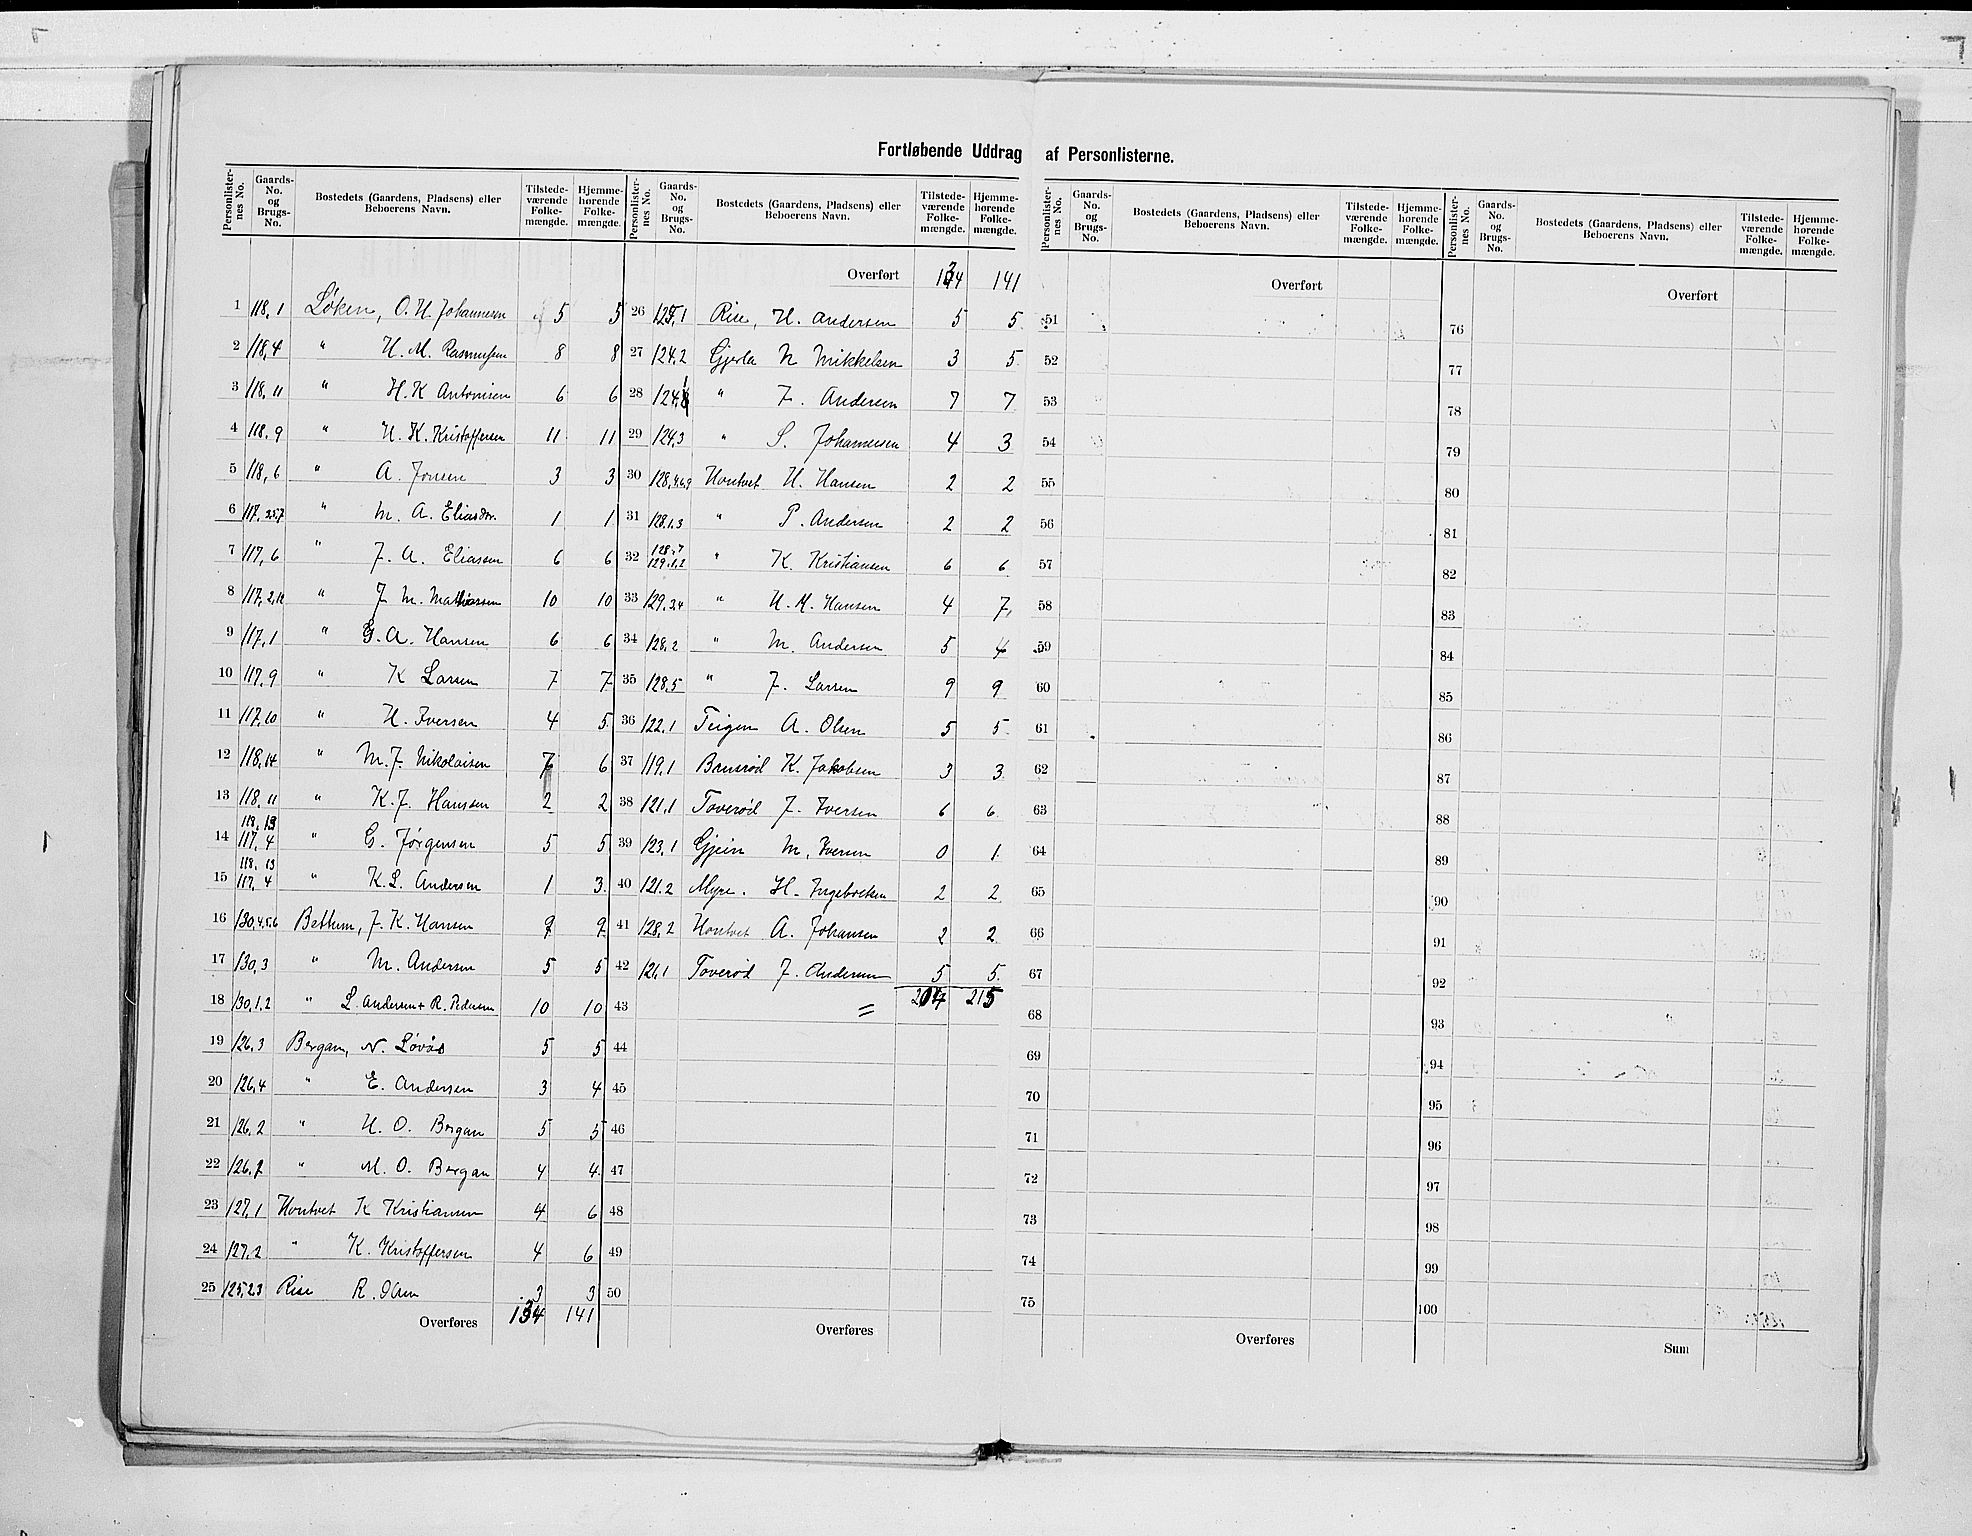 Fortløbende Uddrag af Personlisterne.
Personlisternes No. Gaards-No. og Brugs-No. Bostedets (Gaardens, Pladsens) eller Beboerens Navn. Tilstedeværende Folkemængde. Hjemmehørende Folkemængde.
1 118,1 Løken, O. H. Johannesen 5 5
2 118,4 " H. M. Rasmussen 8 8
3 118,11 " H. K Antonisen 6 6
4 118,9 " H. K. Kristoffersen 11 11
5 118,6 " A. Jonsen 3 3
6 117,3.5.7 " M. A. Eliasdtr. 1 1
7 117,6 " J. A. Eliassen 6 6
8 117,2,12 " J M. Mathiassen 10 10
9 117,1 " G. A. Hansen 6 6
10 117,9 " K Larsen 7 7
11 117,10 " H. Iversen 4 5
12 118,14 " M. J. Nikolaisen 7 6
13 118,11 " K. J. Hanssen 2 2
14 118,13 117,4 " G. Jørgensen 5 5
15 118,13 117,4 " K. L. Andersen 1 3
16 130,4.5.6 Bettum, J. K. Hansen 9 9
17 130,3 " M. Andersen 5 5
18 130,1.2 " L. Andersen + R. Pedersen 10 10
19 126,3 Bergan, N. Løvås 5 5
20 126,4 " E. Andersen 3 4
21 126,2 " H. O. Bergan 5 5
22 126,2 " M. O. Bergan 4 4
23 127,1 Hontvet K Kristiansen 4 6
24 127,2 " K. Kristoffersen 4 6
25 125,2.3 Rise R. Olsen 3 3
Overføres 134 141
Personlisternes No. Gaards-No. og Brugs-No. Bostedets (Gaardens, Pladsens) eller Beboerens Navn. Tilstedeværende Folkemængde. Hjemmehørende Folkemængde.
Overført 134 141
26 125,1 Rise, H. Andersen 5 5
27 124,2 Gjerla N Mikkelsen 3 5
28 124,1 " J. Andersen 7 7
29 124,3 " S. Johannesen 4 3
30 128,4.6.9 Hontvet H. Hansen 2 2
31 128,1.3 " P. Andersen 2 2
32 128,7 129,1.2 " K. Kristiansen 6 6
33 129,3.4 " H. M. Hansen 4 7
34 128,2 " M. Andersen 5 4
35 128,5 " J. Larsen 9 9
36 122,1 Teigen A. Olsen 5 5
37 119,1 Bensrød K. Jakobsen 3 3
38 121,1 Toverød J. Iversen 6 6
39 123,1 Gjein M. Iversen 0 1
40 121,2 Myre. H. Ingebretsen 2 2
41 128,2 Hontvet A. Johansen 2 2
42 126,1 Toverød J. Andersen 5 5
43 = 204 215
44
45
46
47
48
49
50
Overføres
Personlisternes No. Gaards-No. og Brugs-No. Bostedets (Gaardens, Pladsens) eller Beboerens Navn. Tilstedeværende Folkemængde. Hjemmehørende Folkemængde.
Overført
51
52
53
54
55
56
57
58
59
60
61
62
63
64
65
66
67
68
69
70
71
72
73
74
75
Overføres
Personlisternes No. Gaards-No. og Brugs-No. Bostedets (Gaardens, Pladsens) eller Beboerens Navn. Tilstedeværende Folkemængde. Hjemmehørende Folkemængde.
Overført
76
77
78
79
80
81
82
83
84
85
86
87
88
89
90
91
92
93
94
95
96
97
98
99
100
Sum